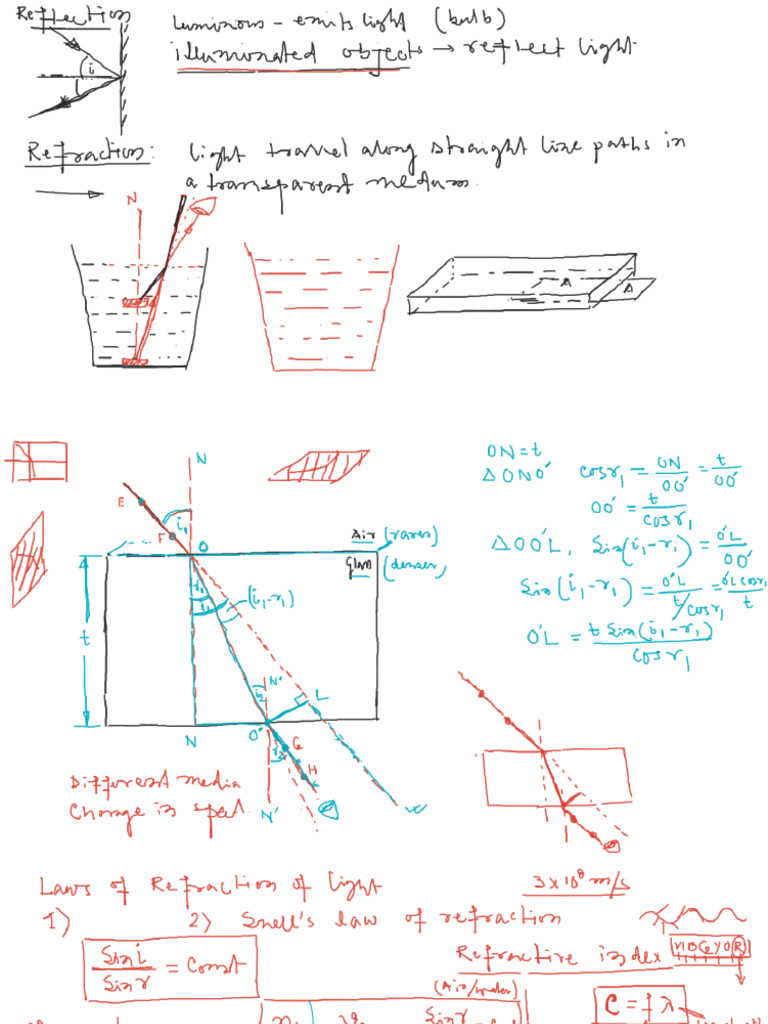 Reflection
luminous - emits light (bulb)
illuminated objects → reflect light
i
Refraction: light travel along straight line paths in
a transparent medium.
N
A
A
N
E
i₁
F
O
Air (rarer)
Glass (denser)
r₁
i₁
(i₁-r₁)
t
i₂
N'
L
N
O'
G
r₂
H
N'
ON = t
ΔONO' cosr₁ = ON/OO' = t/OO'
OO' = t/cosr₁
ΔOO'L, Sin(i₁-r₁) = O'L/OO'
Sin(i₁-r₁) = O'L/(t/cosr₁) = O'L cosr₁/t
O'L = t Sin(i₁-r₁)/cosr₁
Different media
Change in speed
Laws of Refraction of light
3 x 10⁸ m/s
1) 2) Snell's law of refraction
Sin i/Sin r = Const
Refractive index
VIBGYOR
(Air/water)
C = fλ
Sin i